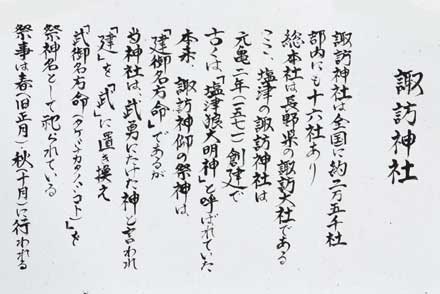 諏訪神社
諏訪神社は全国に約二万五千社
部内にも十六社あり
総本社は長野県の諏訪大社である
ここ、塩津の諏訪神社は
元亀二年(一五七一)創建で
古くは「塩津狼大明神」と呼ばれていた
本来、諏訪神仰の祭神は
「建御名方命」であるが
当神社は、武勇にたけた神と言われ
「建」を「武」に置き換え
「武御名方命(タケミナカタノミコト)」を
祭神名として祀られている
祭事は春(旧正月)・秋(十月)に行われる